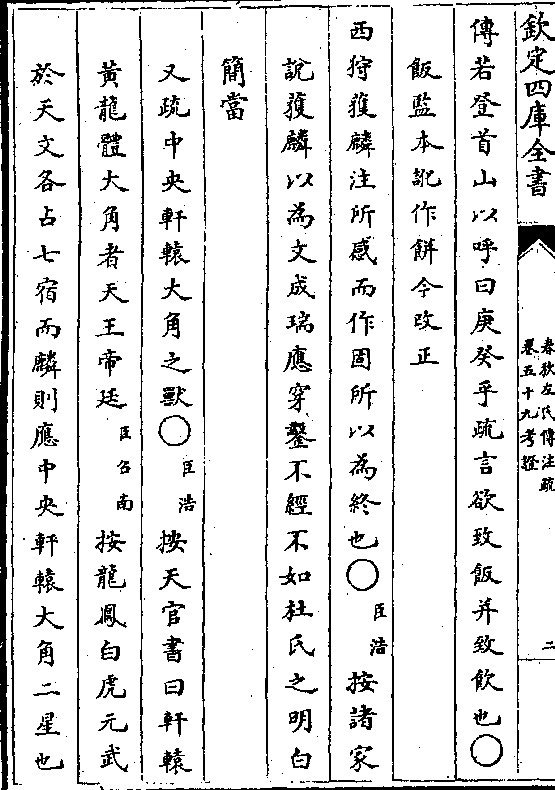 欽定四庫全書
春秋左氏傳注疏
卷五十九考證
二
傳若登首山以呼曰庚癸乎疏言欲致飯并致飲也〇
飯監本訛作餅今改正
西狩獲麟注所感而作固所以為終也〇臣浩按諸家
說獲麟以為文成瑞應穿鑿不經不如杜氏之明白
簡當
又疏中央軒轅大角之獸〇臣浩按天官書曰軒轅
黃龍體大角者天王帝廷臣召南按龍鳳白虎元武
於天文各占七宿而麟則應中央軒轅大角二星也